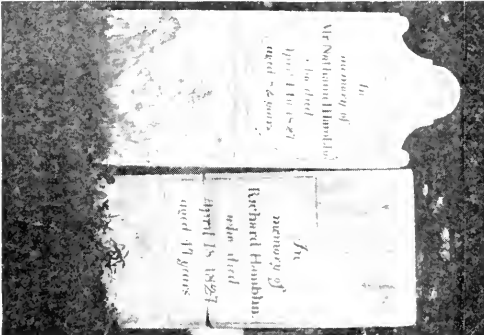 In
memory of
Mr Nathaniel Hamblin
who died
aged years
In
memory of
Richard Hamblin
who died
April 18 1827
aged 17 years